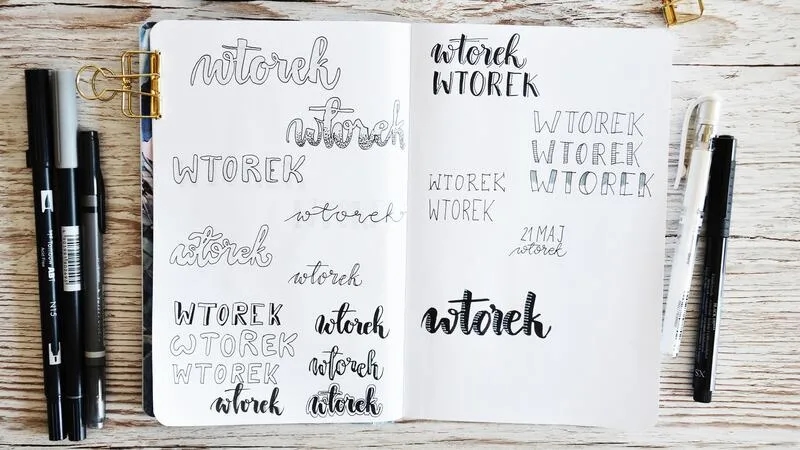 wtorek
wtorek
WTOREK
wtorek
wtorek
wtorek
WTOREK
WTOREK
WTOREK
wtorek
wtorek
wtorek
wtorek
wtorek
WTOREK
WTOREK
WTOREK
WTOREK
WTOREK
WTOREK
21 MAJ
wtorek
wtorek
Tombow ABT
N15